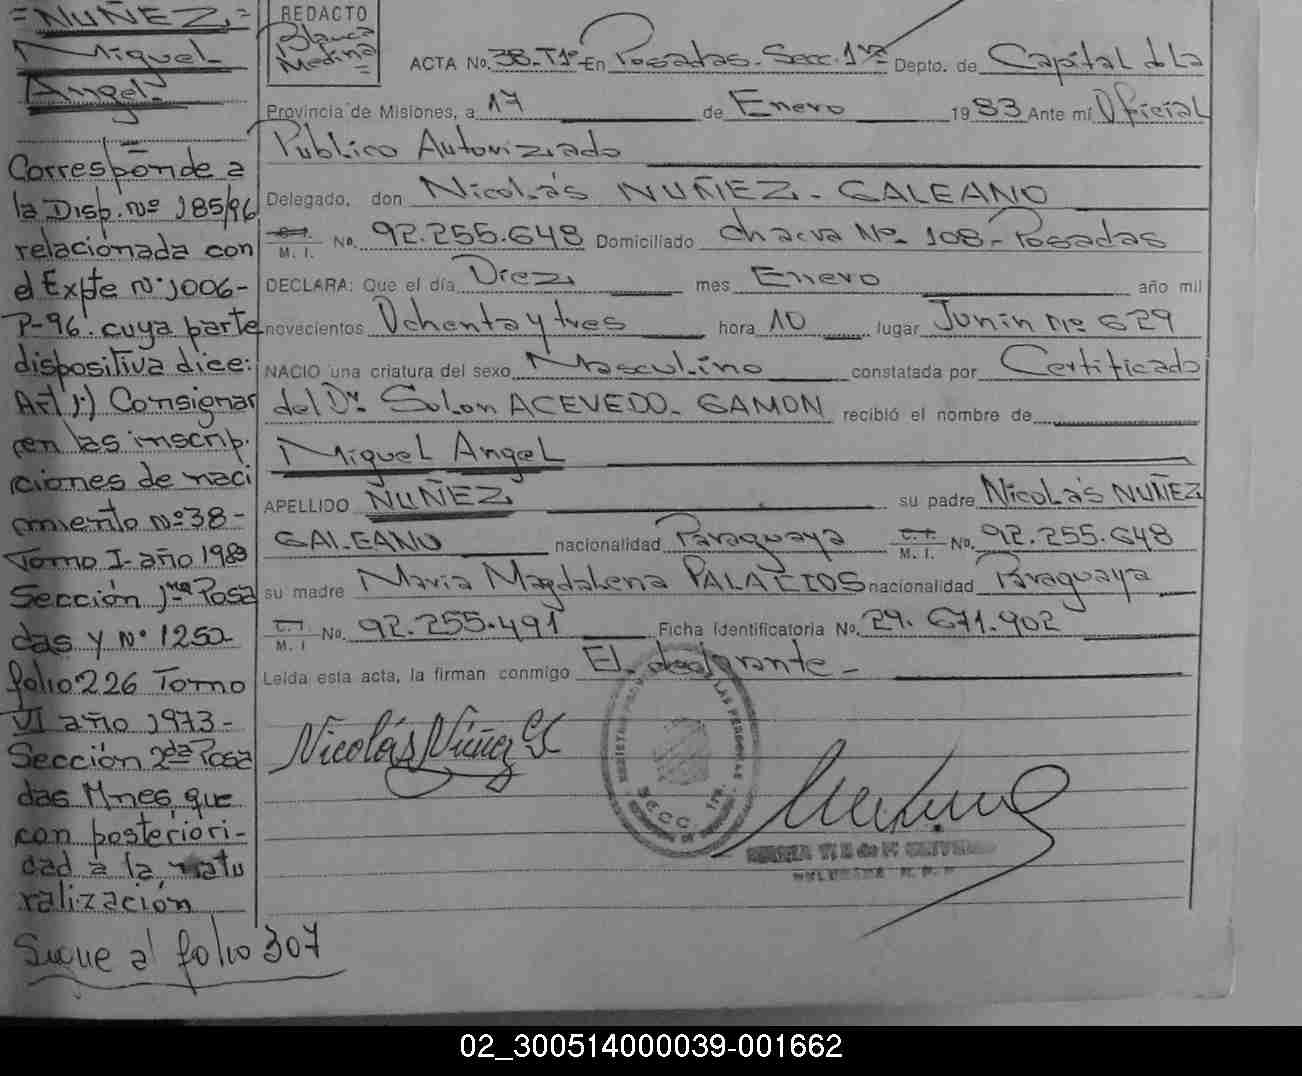 =NUÑEZ=
Miguel
Angel
Corresponde a
la Disp. Nº 185/96
relacionada con
el Expte nº 1006-
P-96. cuya parte
dispositiva dice:
Art 1º) Consignar
en las inscrip.
ciones de naci
miento nº 38-
Tomo I- año 1983
Sección 1ra Posa
das y Nº 1250
folio 226 Tomo
VI año 1973-
Sección 2da Posa
das Mnes, que
con posteriori-
dad a la natu
ralización
Sigue al folio 307
REDACTO
Blanca
Medina
=
ACTA No. 38-T1º- En Posadas. Secc. 1ra Depto. de Capital d La
Provincia de Misiones, a 17 de Enero 1983 Ante mí Oficial
Público Autorizado
Delegado, don Nicolás NUÑEZ - GALEANO
M. I. No. 92.255.648 Domiciliado Chacra Nº 108- Posadas
DECLARA: Que el día Diez mes Enero año mil
novecientos Ochenta y tres hora 10 lugar Junin Nº 629
NACIO una criatura del sexo Masculino constatada por Certificado
del Dr. Solon ACEVEDO- GAMON recibió el nombre de
Miguel Angel
APELLIDO NUÑEZ su padre Nicolás NUÑEZ
GALEANO nacionalidad Paraguaya M. I. No. 92.255.648
su madre Maria Magdalena PALACIOS nacionalidad Paraguaya
C. I. M. I No. 92.255.491 Ficha Identificatoria No. 29.671.902
Leída esta acta, la firman conmigo El declarante-
Nicolás Núñez G
SECC. 1ra.
02_300514000039-001662